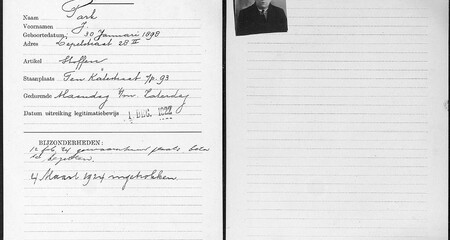 Naam Park
Voornamen J.
Geboortedatum, 30 Januari 1898
Adres Lepelstraat 28 II
Artikel Stoffen
Staanplaats Ten Katestraat /p. 93
Gedurende Maandag t/m Zaterdag
Datum uitreiking legitimatiebewijs 1 DEC. 1922
BIJZONDERHEDEN:
12 feb 24 gewaarschuwd plaats beter
te bezetten.
4 Maart 1924 ingetrokken